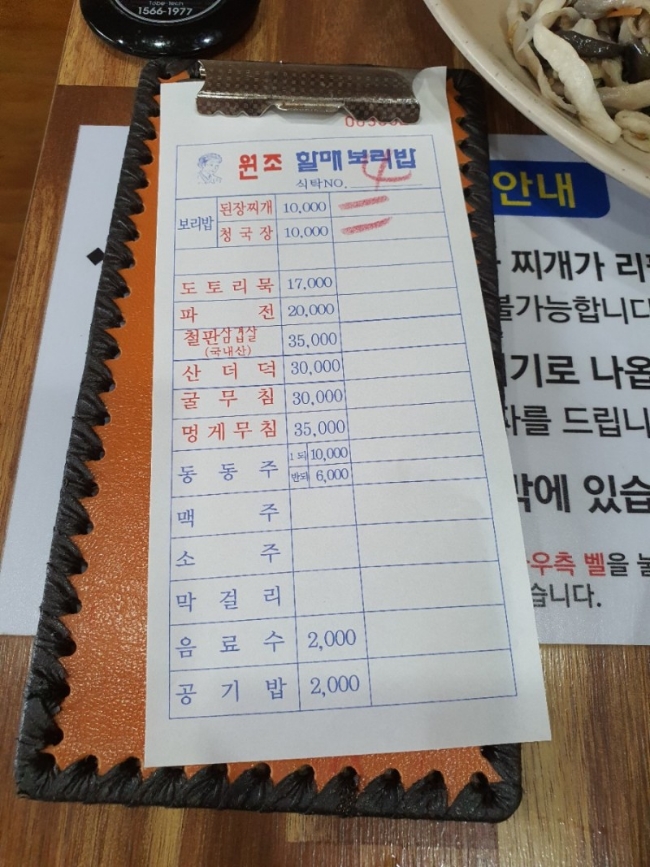 1566-1977
원조 할매보리밥
식탁NO. 4
보리밥 된장찌개 10,000
청국장 10,000
도토리묵 17,000
파전 20,000
철판삼겹살 (국내산) 35,000
산더덕 30,000
굴무침 30,000
멍게무침 35,000
동동주 1되 10,000
반되 6,000
맥주
소주
막걸리
음료수 2,000
공기밥 2,000
안내
찌개가 리
불가능합니다
기로 나옵
를 드립니
밖에 있습
우측 벨을 눌
습니다.